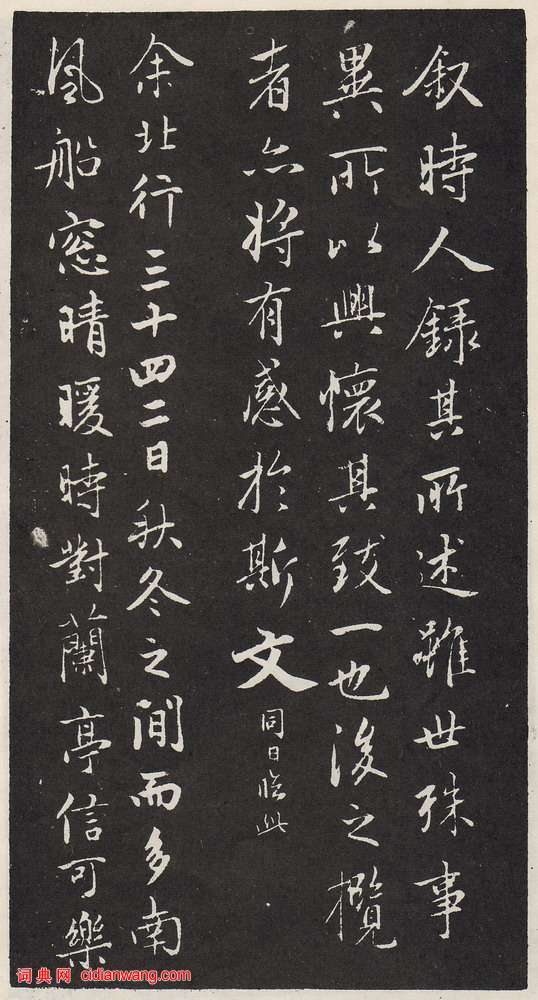 叙時人錄其所述雖世殊事
異所以興懷其致一也後之攬
者亦將有感於斯文 同日臨此
余北行三十四二日秋冬之間而多南
風船窓晴暖時對蘭亭信可樂
词典网 cidianwang.com